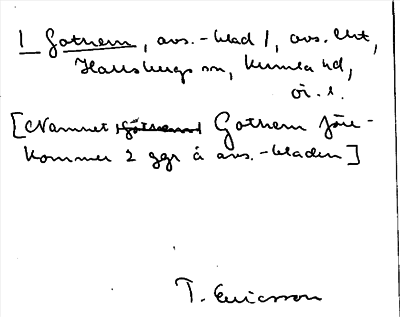 1 Gothem, avs.-blad 1, avs. Ört,
Hallsbergs sn, Kumla hd,
ör. l.
[Namnet Gothem före-
kommer 2 ggr å avs.-bladen]
T. Ericsson